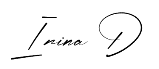 Irina D